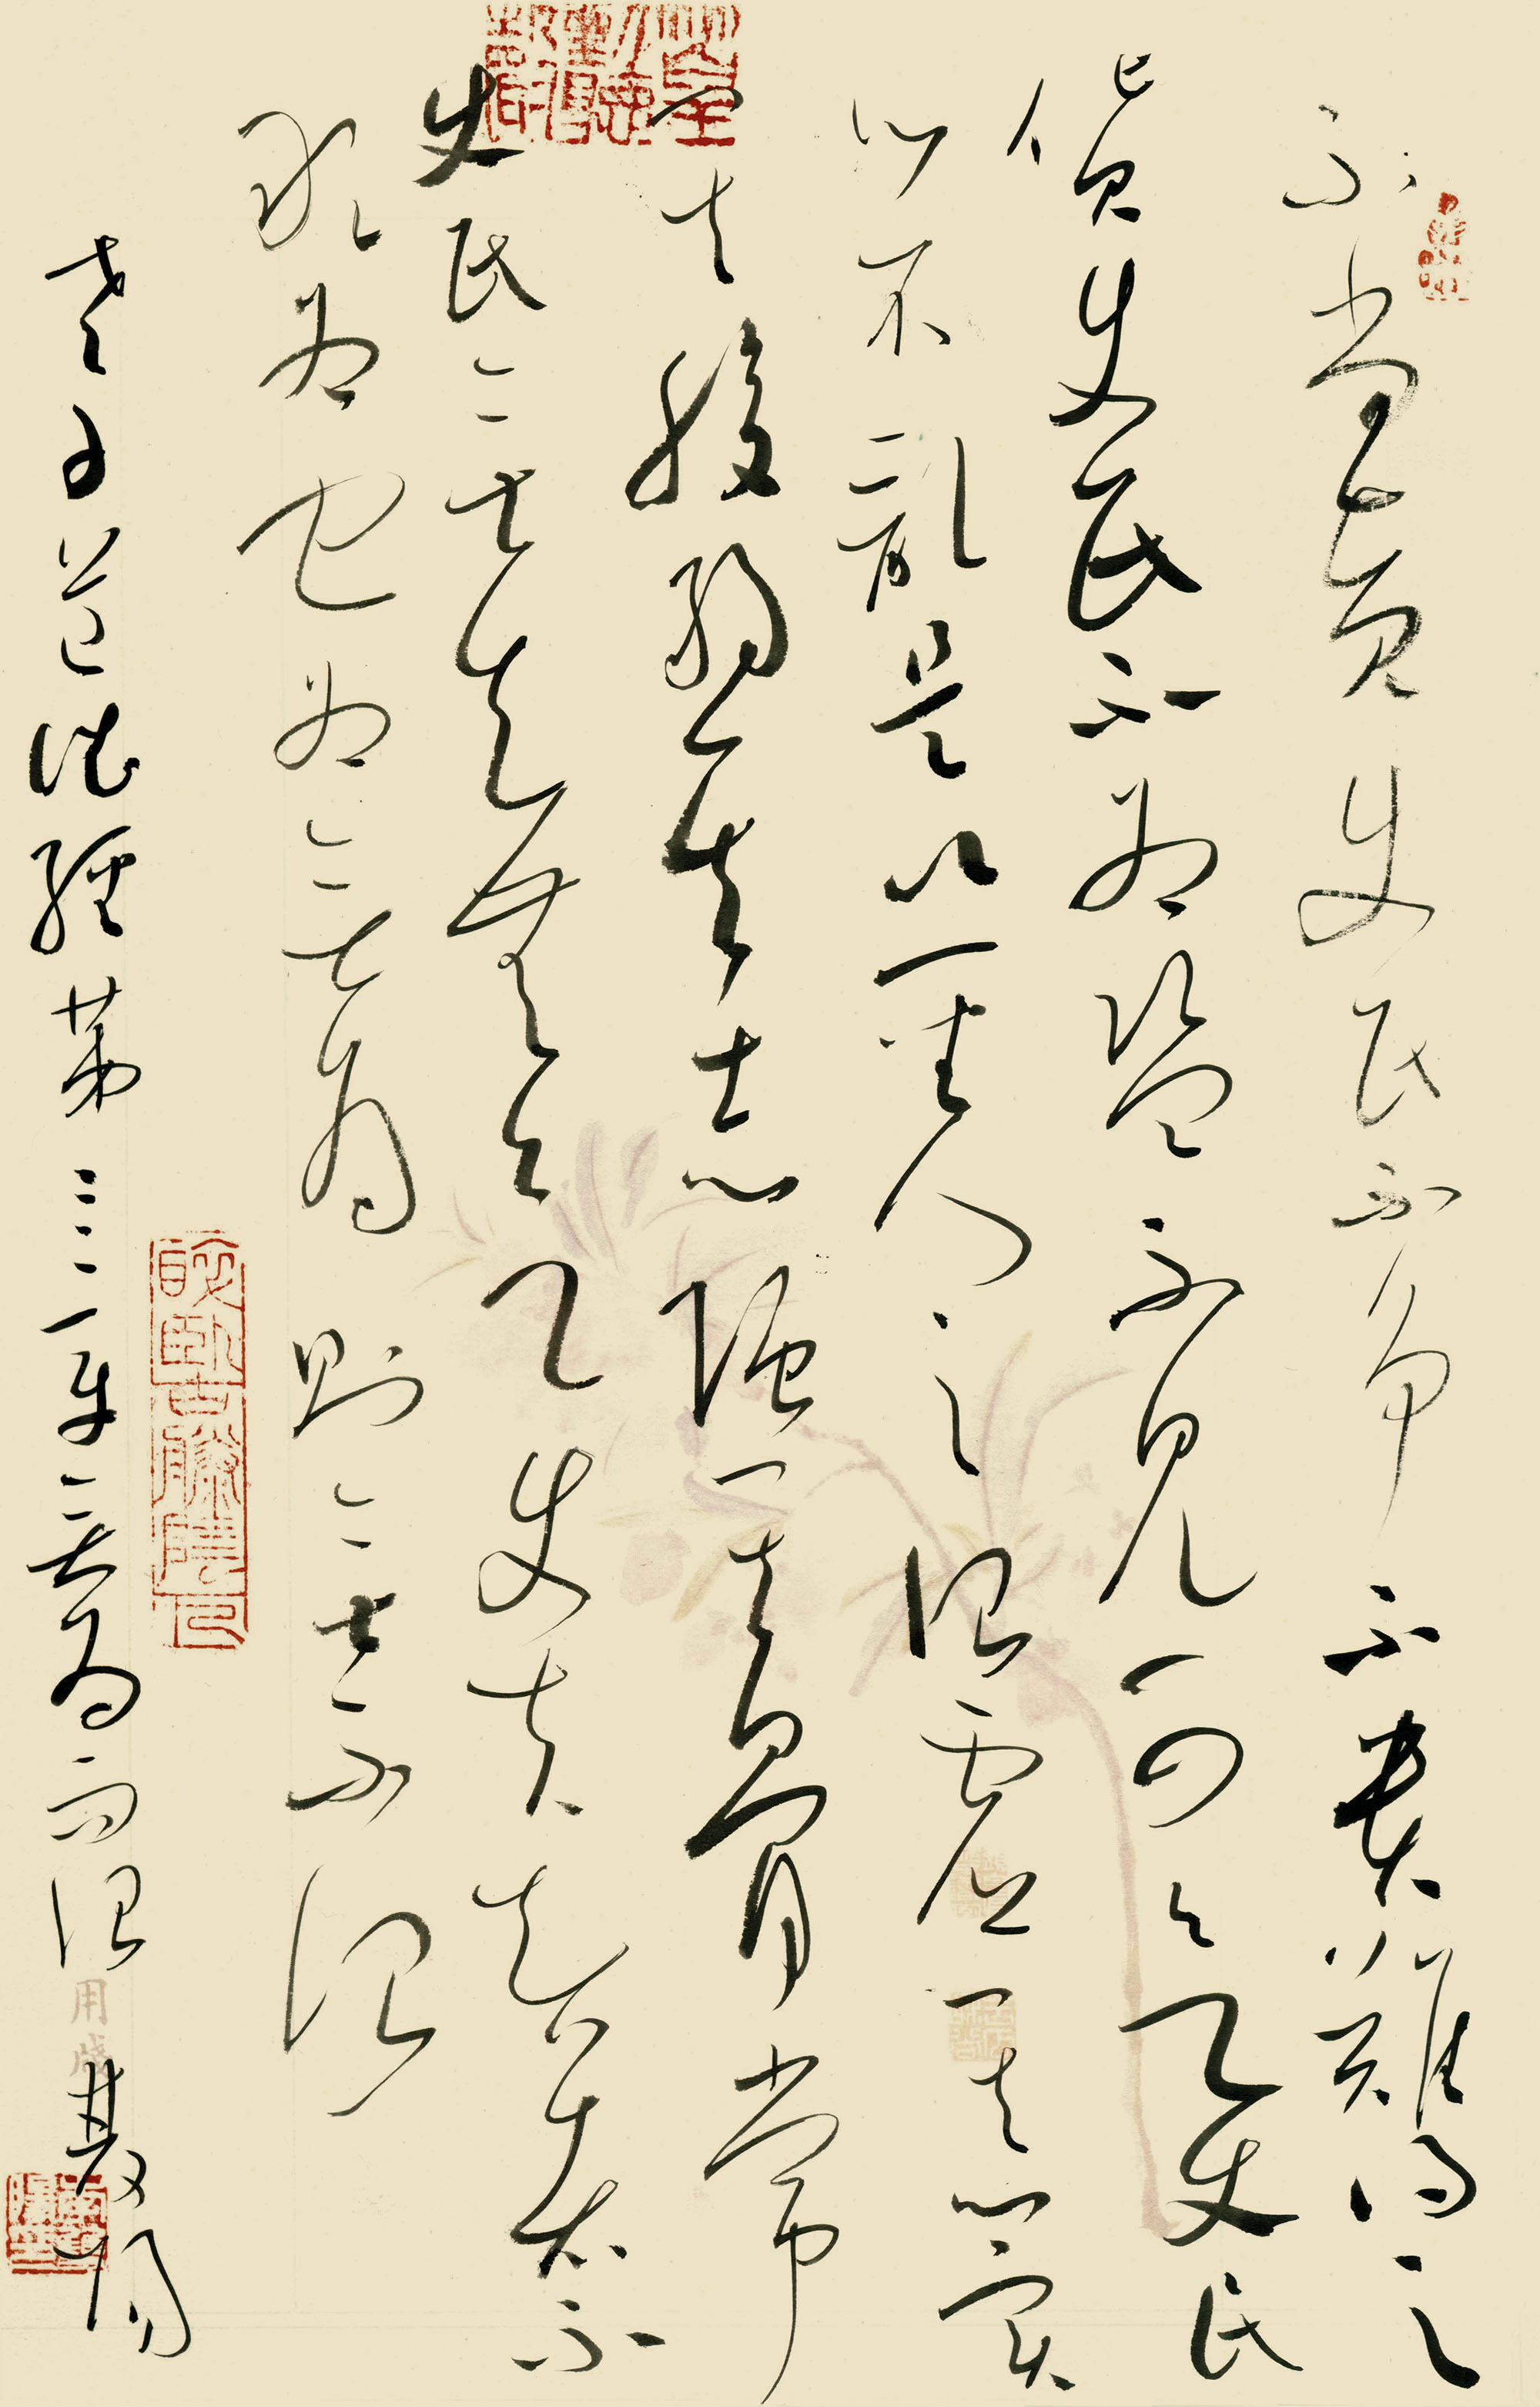 不尚賢使民不爭不貴難得之
貨使民不為盜不見可欲使民
心不亂是以聖人之治虛其心實
其腹弱其志強其骨常
使民無知無欲使夫智者不
敢為也為無為則無不治
老子道德經第三章無為而治
臥古藤陰
用箋